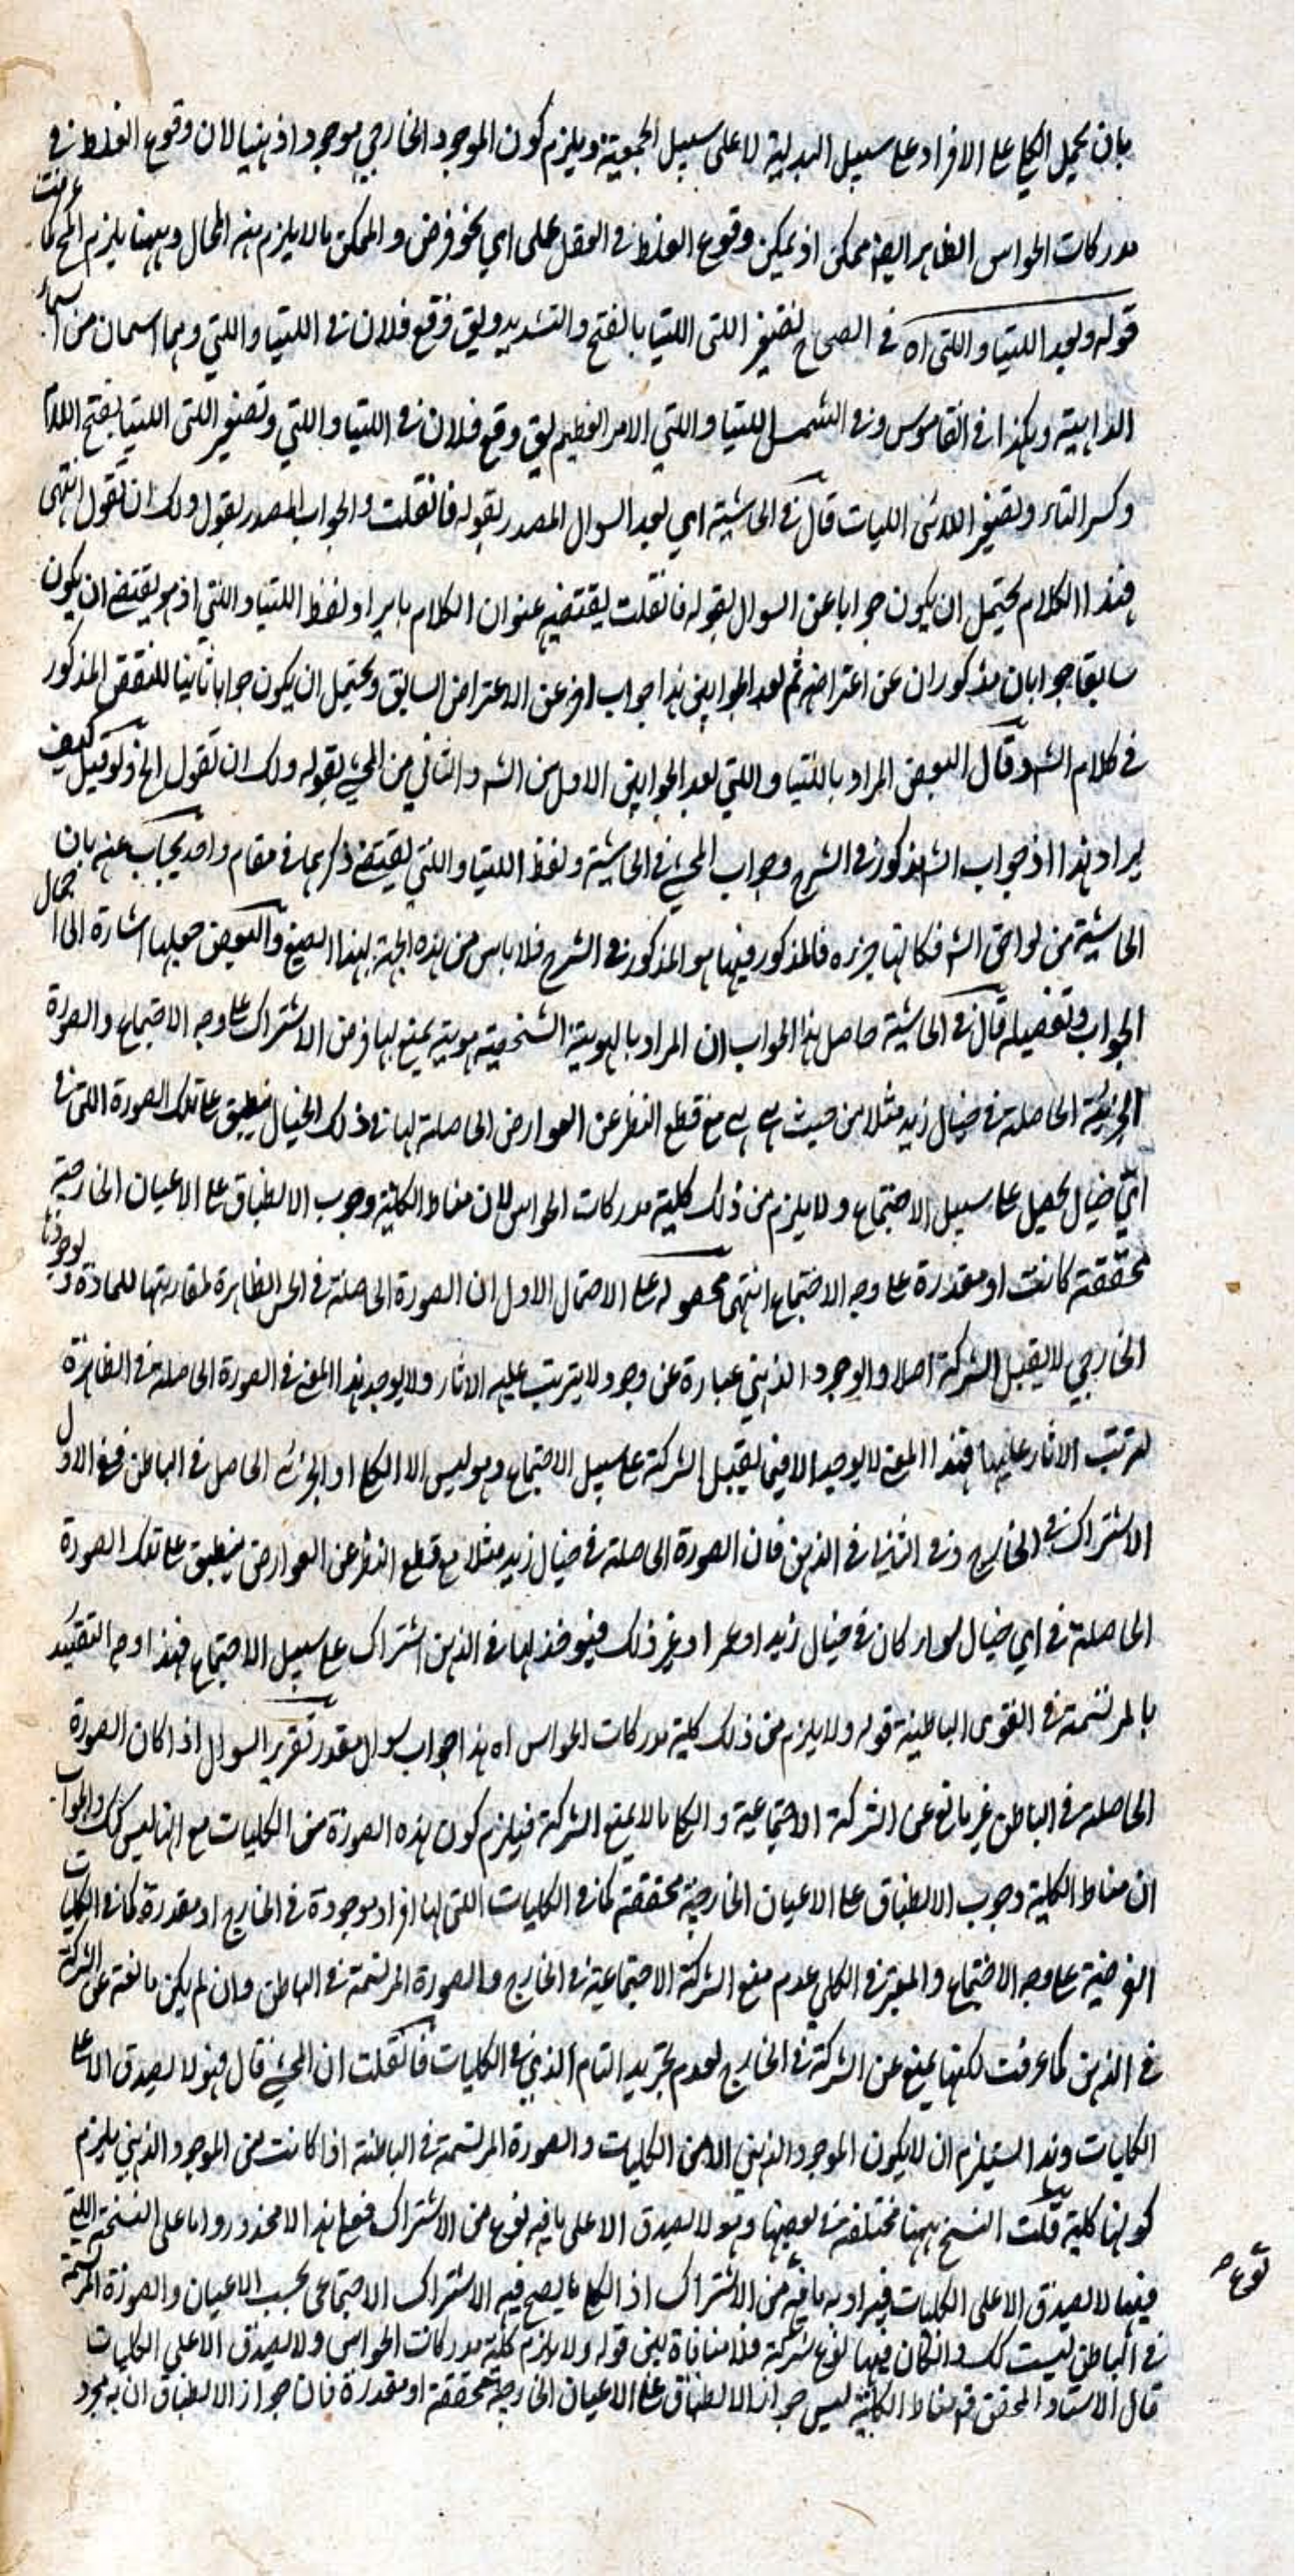 بان يحمل الكلي على الافراد على سبيل البدلية لا على سبيل الجمعية ويلزم كون الموجود الخارجي موجودا ذهنيا لان وقوع الغلط في
مدركات الحواس الظاهرة ايضا ممكن اذ يمكن وقوع الغلط في العقل على اي نحو فرض والممكن ما لا يلزم منه المحال وههنا يلزم المح كما عرفت
قوله وبعد اللتيا واللتي اه في الصحاح تصغير اللتي اللتيا بالفتح والتشديد ويق وقع فلان في اللتيا واللتي وهما اسمان من اسماء
الداهية وهكذا في القاموس وفي الشمس اللتيا واللتي الامر العظيم يق وقع فلان في اللتيا واللتي وتصغير اللتي اللتيا بفتح اللام
وكسر التاء وتصغير اللائي اللتيات قال في الحاشية اي بعد السوال المصدر بقوله فانقلت والجواب المصدر بقول ولك ان تقول انتهى
فهذا الكلام يحتمل ان يكون جوابا عن السوال بقوله فانقلت يقتضيه عنوان الكلام بايراد لفظ اللتيا واللتي اذ هو يقتضي ان يكون
سابقا جوابان مذكوران عن اعتراض ثم بعد الجوابين هذا جواب اخر عن الاعتراض السابق ويحتمل ان يكون جوابا ثانيا للنقض المذكور
في كلام الشه وقال البعض المراد باللتيا واللتي بعد الجوابين الاول من الشه والثاني من المحشي بقوله ولك ان تقول الخ ولو قيل كيف
يراد هذا اذ جواب الشه مذكور في الشرح وجواب المحشي في الحاشية ولفظ اللتيا واللتي يقتضي ذكرهما في مقام واحد يجاب عنه بان
الحاشية من لواحق الشه فكانها جزءه فالمذكور فيها هو المذكور في الشرح فلا باس من هذه الجهة بهذا الصيغ والبعض جعلها اشارة الى اجمال
الجواب وتفصيله قال في الحاشية حاصل هذا الجواب ان المراد بالهوية الشخصية هوية يمنع لها فرض الاشتراك على وجه الاجتماع والصورة
الجزئية الحاصلة في خيال زيد مثلا من حيث هي هي مع قطع النظر عن العوارض الحاصلة لها في ذلك الخيال ينطبق على تلك الصورة اللتي في
اي خيال يحصل على سبيل الاجتماع ولا يلزم من ذلك كلية مدركات الحواس لان مناط الكلية وجوب الانطباق على الاعيان الخارجية
محققة كانت او مقدرة على وجه الاجتماع انتهى محصوله على الاحتمال الاول ان الصورة الحاصلة في الحس الظاهرة لمقارنتها للمادة ووجودها
الخارجي لا يقبل الشركة اصلا والوجود الذهني عبارة عن وجود لا يترتب عليه الاثار ولا يوجد هذا المعنى في الصورة الحاصلة في الظاهرة
لترتب الاثار عليها فهذا المعنى لا يوجد الا فيما يقبل الشركة على سبيل الاجتماع وهو ليس الا الكلي او الجزئي الحاصل في الباطن ففي الاول
الاشتراك في الخارج وفي الثاني في الذهن فان الصورة الحاصلة في خيال زيد مثلا مع قطع النظر عن العوارض ينطبق على تلك الصورة
الحاصلة في اي خيال سواء كان في خيال زيد او عمرا وغير ذلك فيوخذ لها في الذهن اشتراك على سبيل الاجتماع فهذا وجه التقييد
بالمرتسمة في القوى الباطنية قوله ولا يلزم من ذلك كلية مدركات الحواس اه هذا جواب سوال مقدر تقرير السوال اذا كان الصورة
الحاصلة في الباطن غير مانع عن الشركة الاجتماعية والكلي ما لا يمنع الشركة فيلزم كون هذه الصورة من الكليات مع انها ليس كك والجواب
ان مناط الكلية وجوب الانطباق على الاعيان الخارجية محققة كما في الكليات اللتي لها افراد موجودة في الخارج او مقدرة كما في الكليات
الفرضية على وجه الاجتماع والمعتبر في الكلي عدم منع الشركة الاجتماعية في الخارج والصورة المرتسمة في الباطن وان لم يكن مانعة عن الشركة
في الذهن كما عرفت لكنها يمنع عن الشركة في الخارج لعدم تجريد التام الذي في الكليات فانقلت ان المحشي قال فهو لا يصدق الا على
الكليات وهذا يستلزم ان لا يكون الموجود الذهني الا من الكليات والصورة المرتسمة في الباطنة اذا كانت من الموجود الذهني يلزم
كونها كلية قلت النسخ ههنا مختلفة في بعضها وهو لا يصدق الا على ما فيه نوع من الاشتراك فعلى هذا لا محذور واما على النسخة اللتي
فيها لا يصدق الا على الكليات فيراد به ما فيه من الاشتراك اذ الكلي ما يصح فيه الاشتراك الاجتماعي بحسب الاعيان والصورة المرتسمة
نوع صح
في الباطن ليست كك وان كان فيها نوع شركة فلا منافاة بين قوله ولا يلزم كلية مدركات الحواس ولا يصدق الا على الكليات
قال الاستاد المحقق قه مناط الكلية ليس جواز الانطباق على الاعيان الخارجية محققة او مقدرة فان جواز الانطباق ان به مجرد